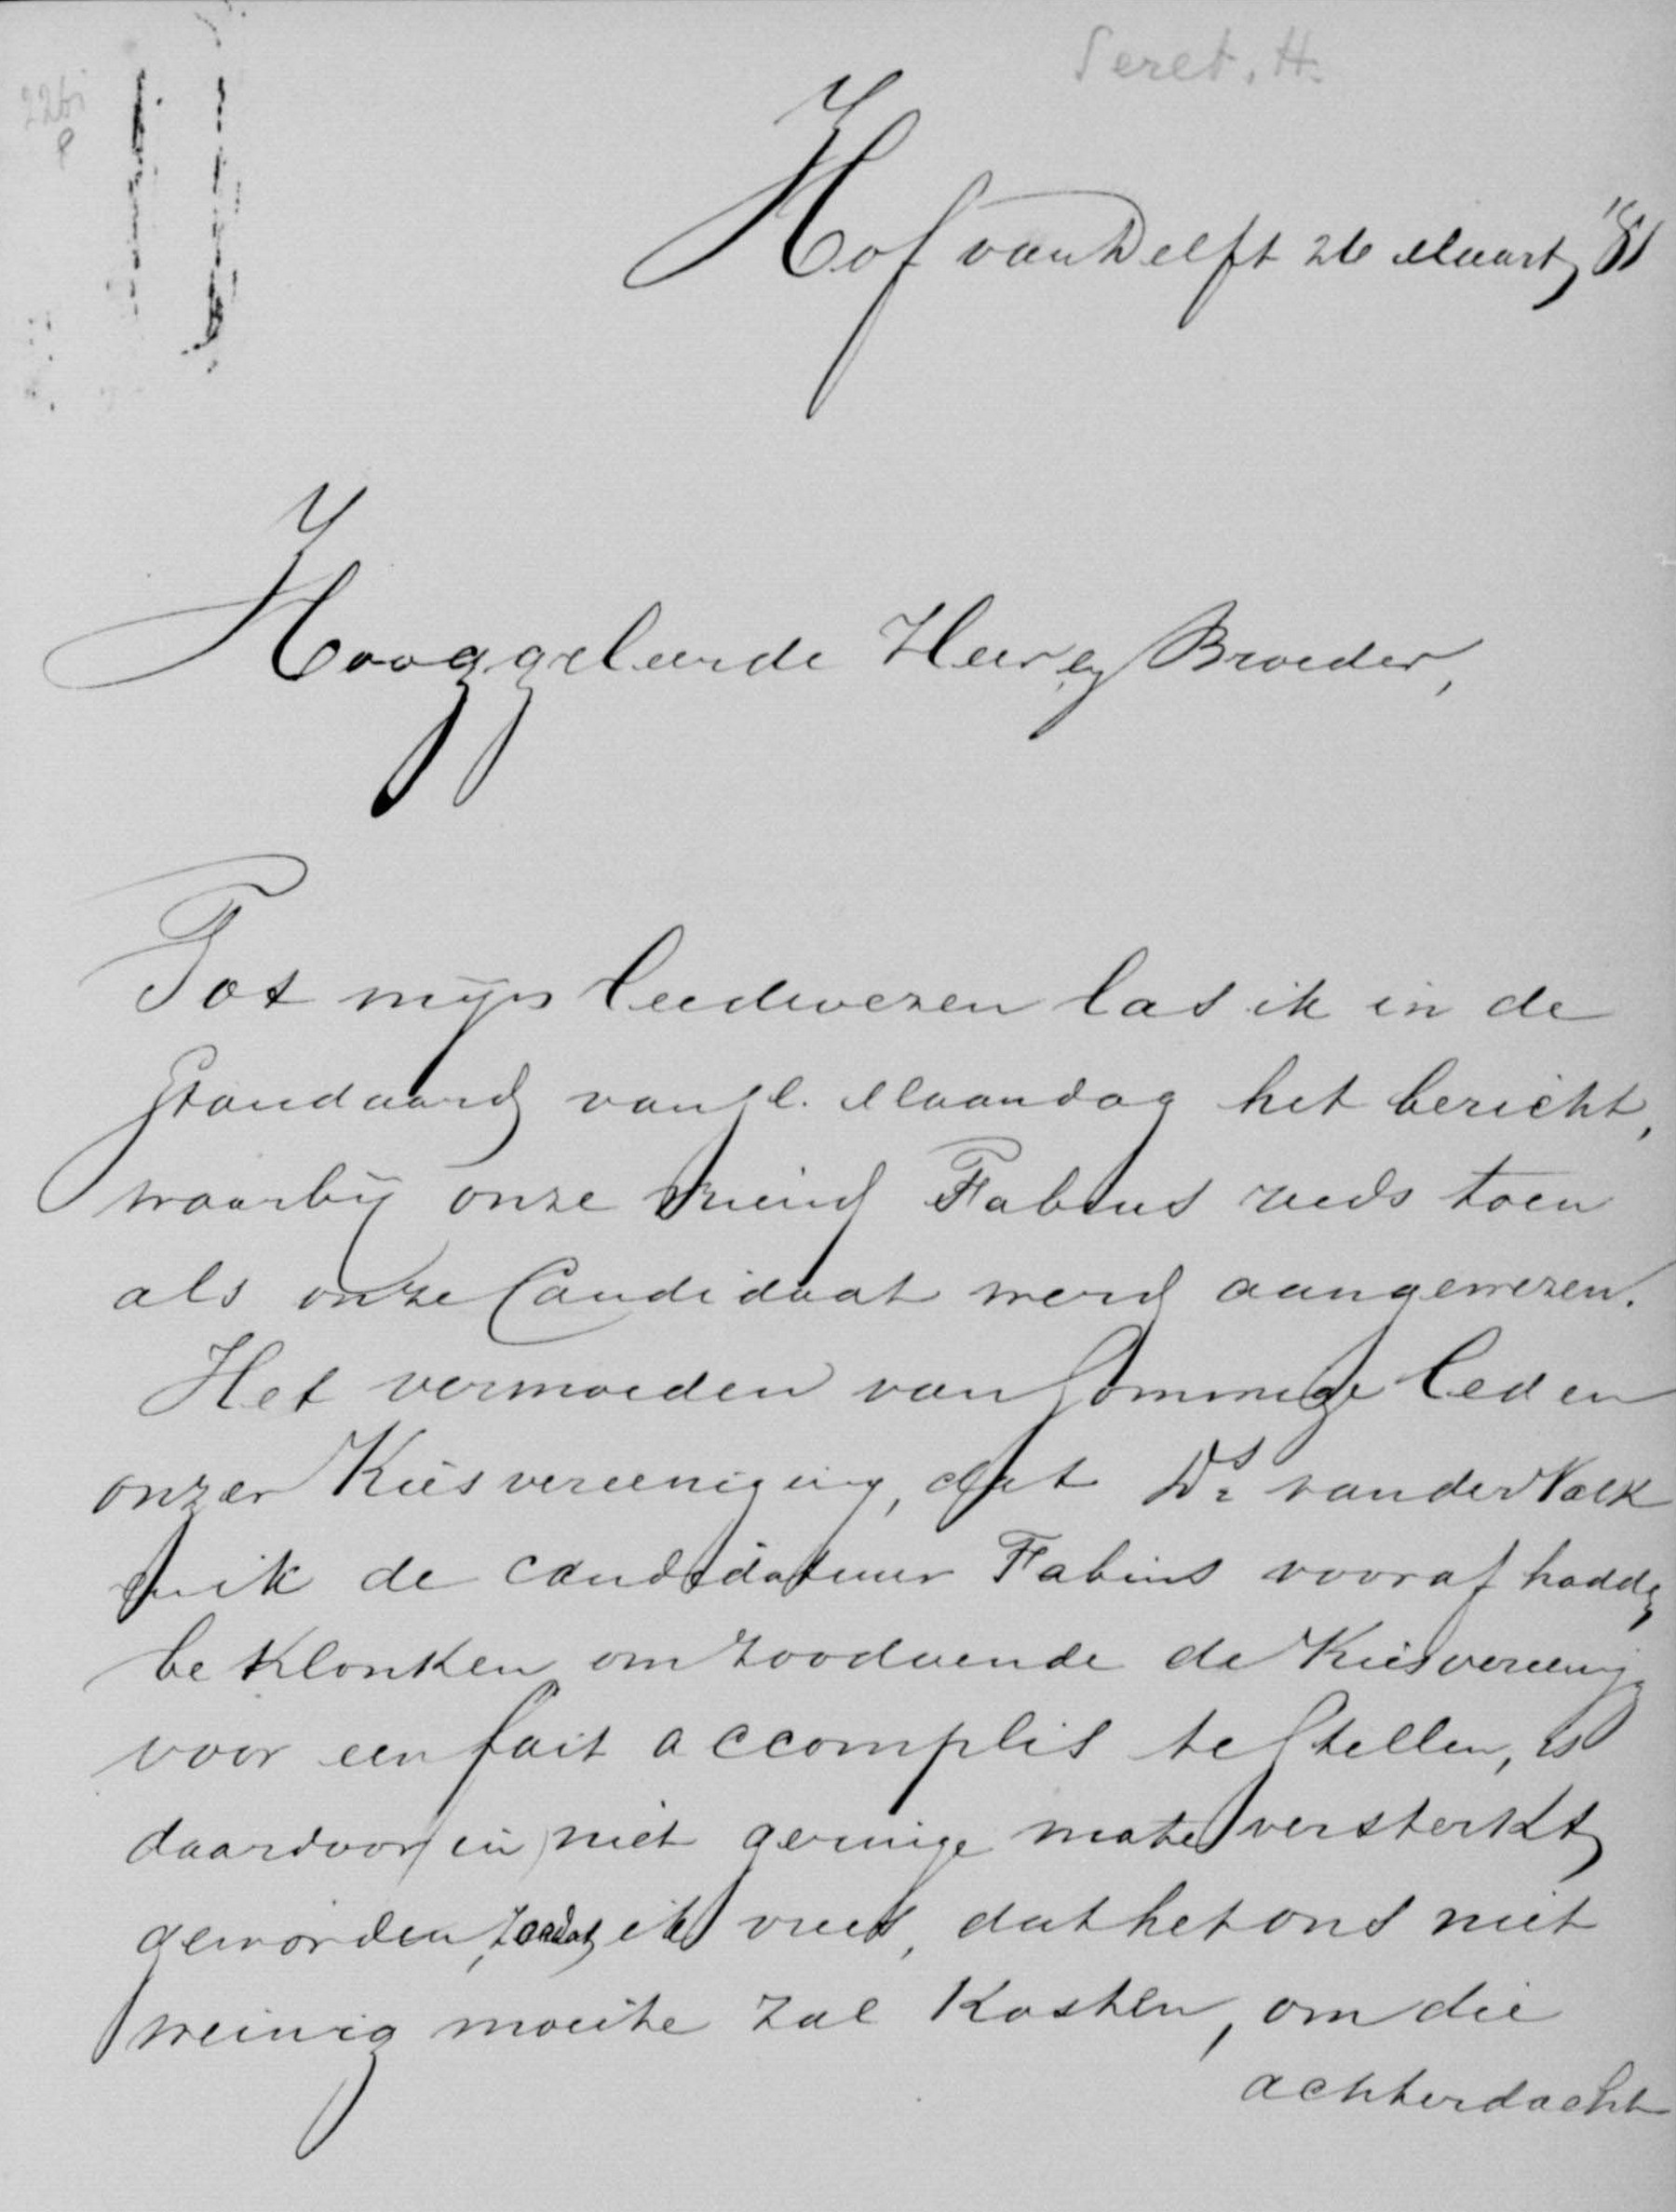 Seret. H.
226
Hof van Delft 26 Maart '81
Hooggeleerde Heer en Broeder,
Tot mijn leedwezen las ik in de
Standaard van j.l. Maandag het bericht,
waarbij onze vriend Fabius reeds toen
als onze Candidaat werd aangewezen.
Het vermoeden van sommige leden
onzer Kiesvereeniging, dat Ds van der Valk
en ik de candidatuur Fabius vooraf hadden
beklonken om zoodoende de Kiesvereenig
voor een fait accomplis te stellen, is
daardoor in niet geringe mate versterkt
geworden, zoodat ik vrees, dat het ons niet
weinig moeite zal kosten, om die
achterdacht